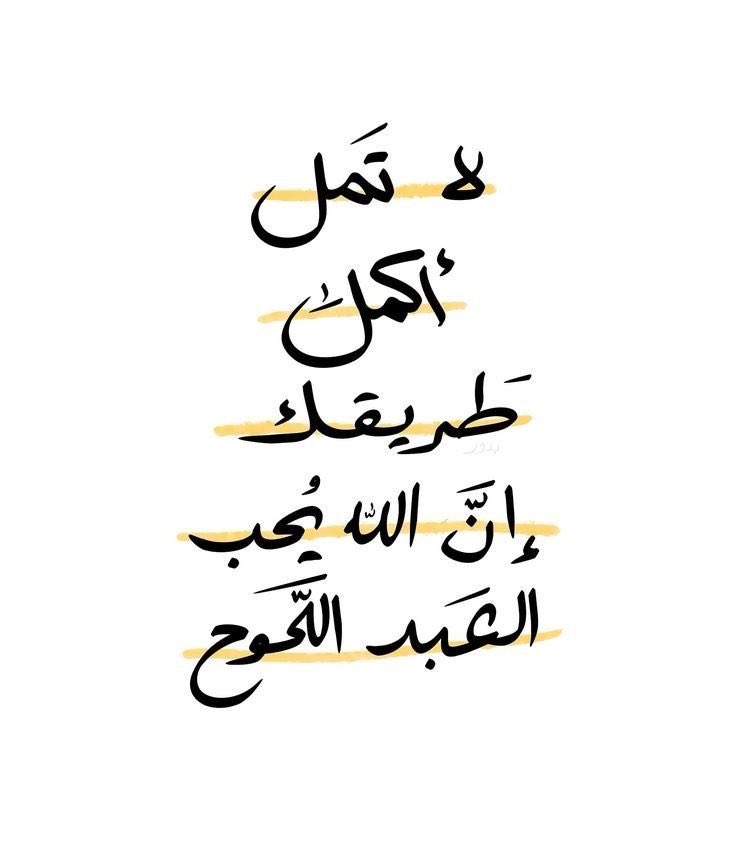 لا تَمل
أكملْ
طَريقك
إنَّ الله يُحب
العَبد اللَّحَوح
بذور